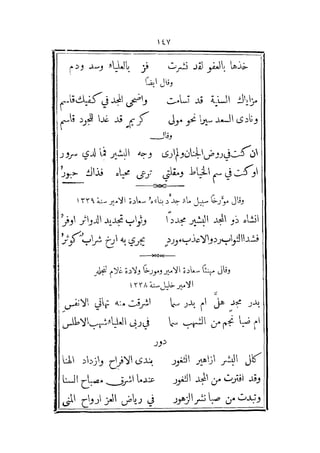 ١٤٧
خذها بالعفو لقد نشرت فز بالعلياء وسد ودم
وقال ايضاً
مزاياك السنية قد تسامت واضحى المجد في كفيك قاسم
ونادى السعد سيرا نحو مولى كريم قد غدا للجود قاسم
وقال
ان كنت في روض الجنان ولم ارى وجه البشير فما لدي سرور
او كنت في سم الخياط ومقلتي ترعى محياه فذاك حبور
وقال مؤرخا سبيل ماء جدد بناءه سعادة الامير سنة ١٢٣٩
انشاه ذو المجد البشير مجدداً وثواب تجديد الدوائر اوفر
فشدا الثواب ردوا الاعذب مورد يجري به ارخ شراب كوثر
وقال مهنئا سعادة الامير ومورخا ولادة غلام لنجله
الامير خليل سنة ١٢٣٨
بدر مجد هل ام بدر سما اشرقت منه تهاني الانفس
ام ضيا نجم من الشهب سما في ربى العلياء شهب الاطلس
دور
كلل البشر ازاهير الثغور بندى الافراح وازداد الهنا
وقد افترت من المجد الثغور عندما اشرق مصباح السنا
وتبدت من صبا نشر الزهور في رياض العز ارواح المنى